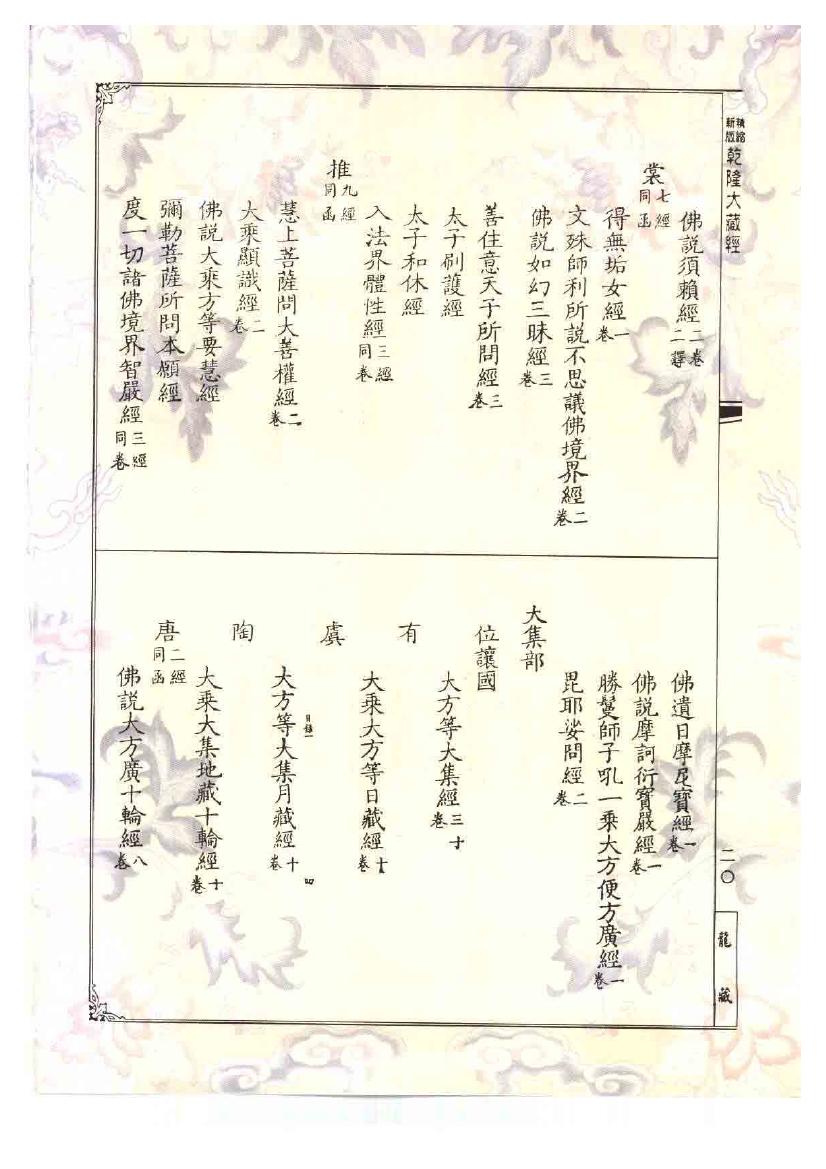 精縮新版乾隆大藏經
佛說須賴經二卷二譯
裳七經同函
得無垢女經一卷
文殊師利所說不思議佛境界經二卷
佛說如幻三昧經三卷
善住意天子所問經三卷
太子刷護經
太子和休經
入法界體性經三經同卷
推九經同函
慧上菩薩問大善權經二卷
大乘顯識經二卷
佛說大乘方等要慧經
彌勒菩薩所問本願經
度一切諸佛境界智嚴經三經同卷
佛遺日摩尼寶經一卷
佛說摩訶衍寶嚴經一卷
勝鬘師子吼一乘大方便方廣經一卷
毘耶娑問經二卷
大集部
位讓國
大方等大集經三十卷
有
大乘大方等日藏經十卷
虞
目錄一
四
大方等大集月藏經十卷
陶
大乘大集地藏十輪經十卷
唐二經同函
佛說大方廣十輪經八卷
二〇
龍藏